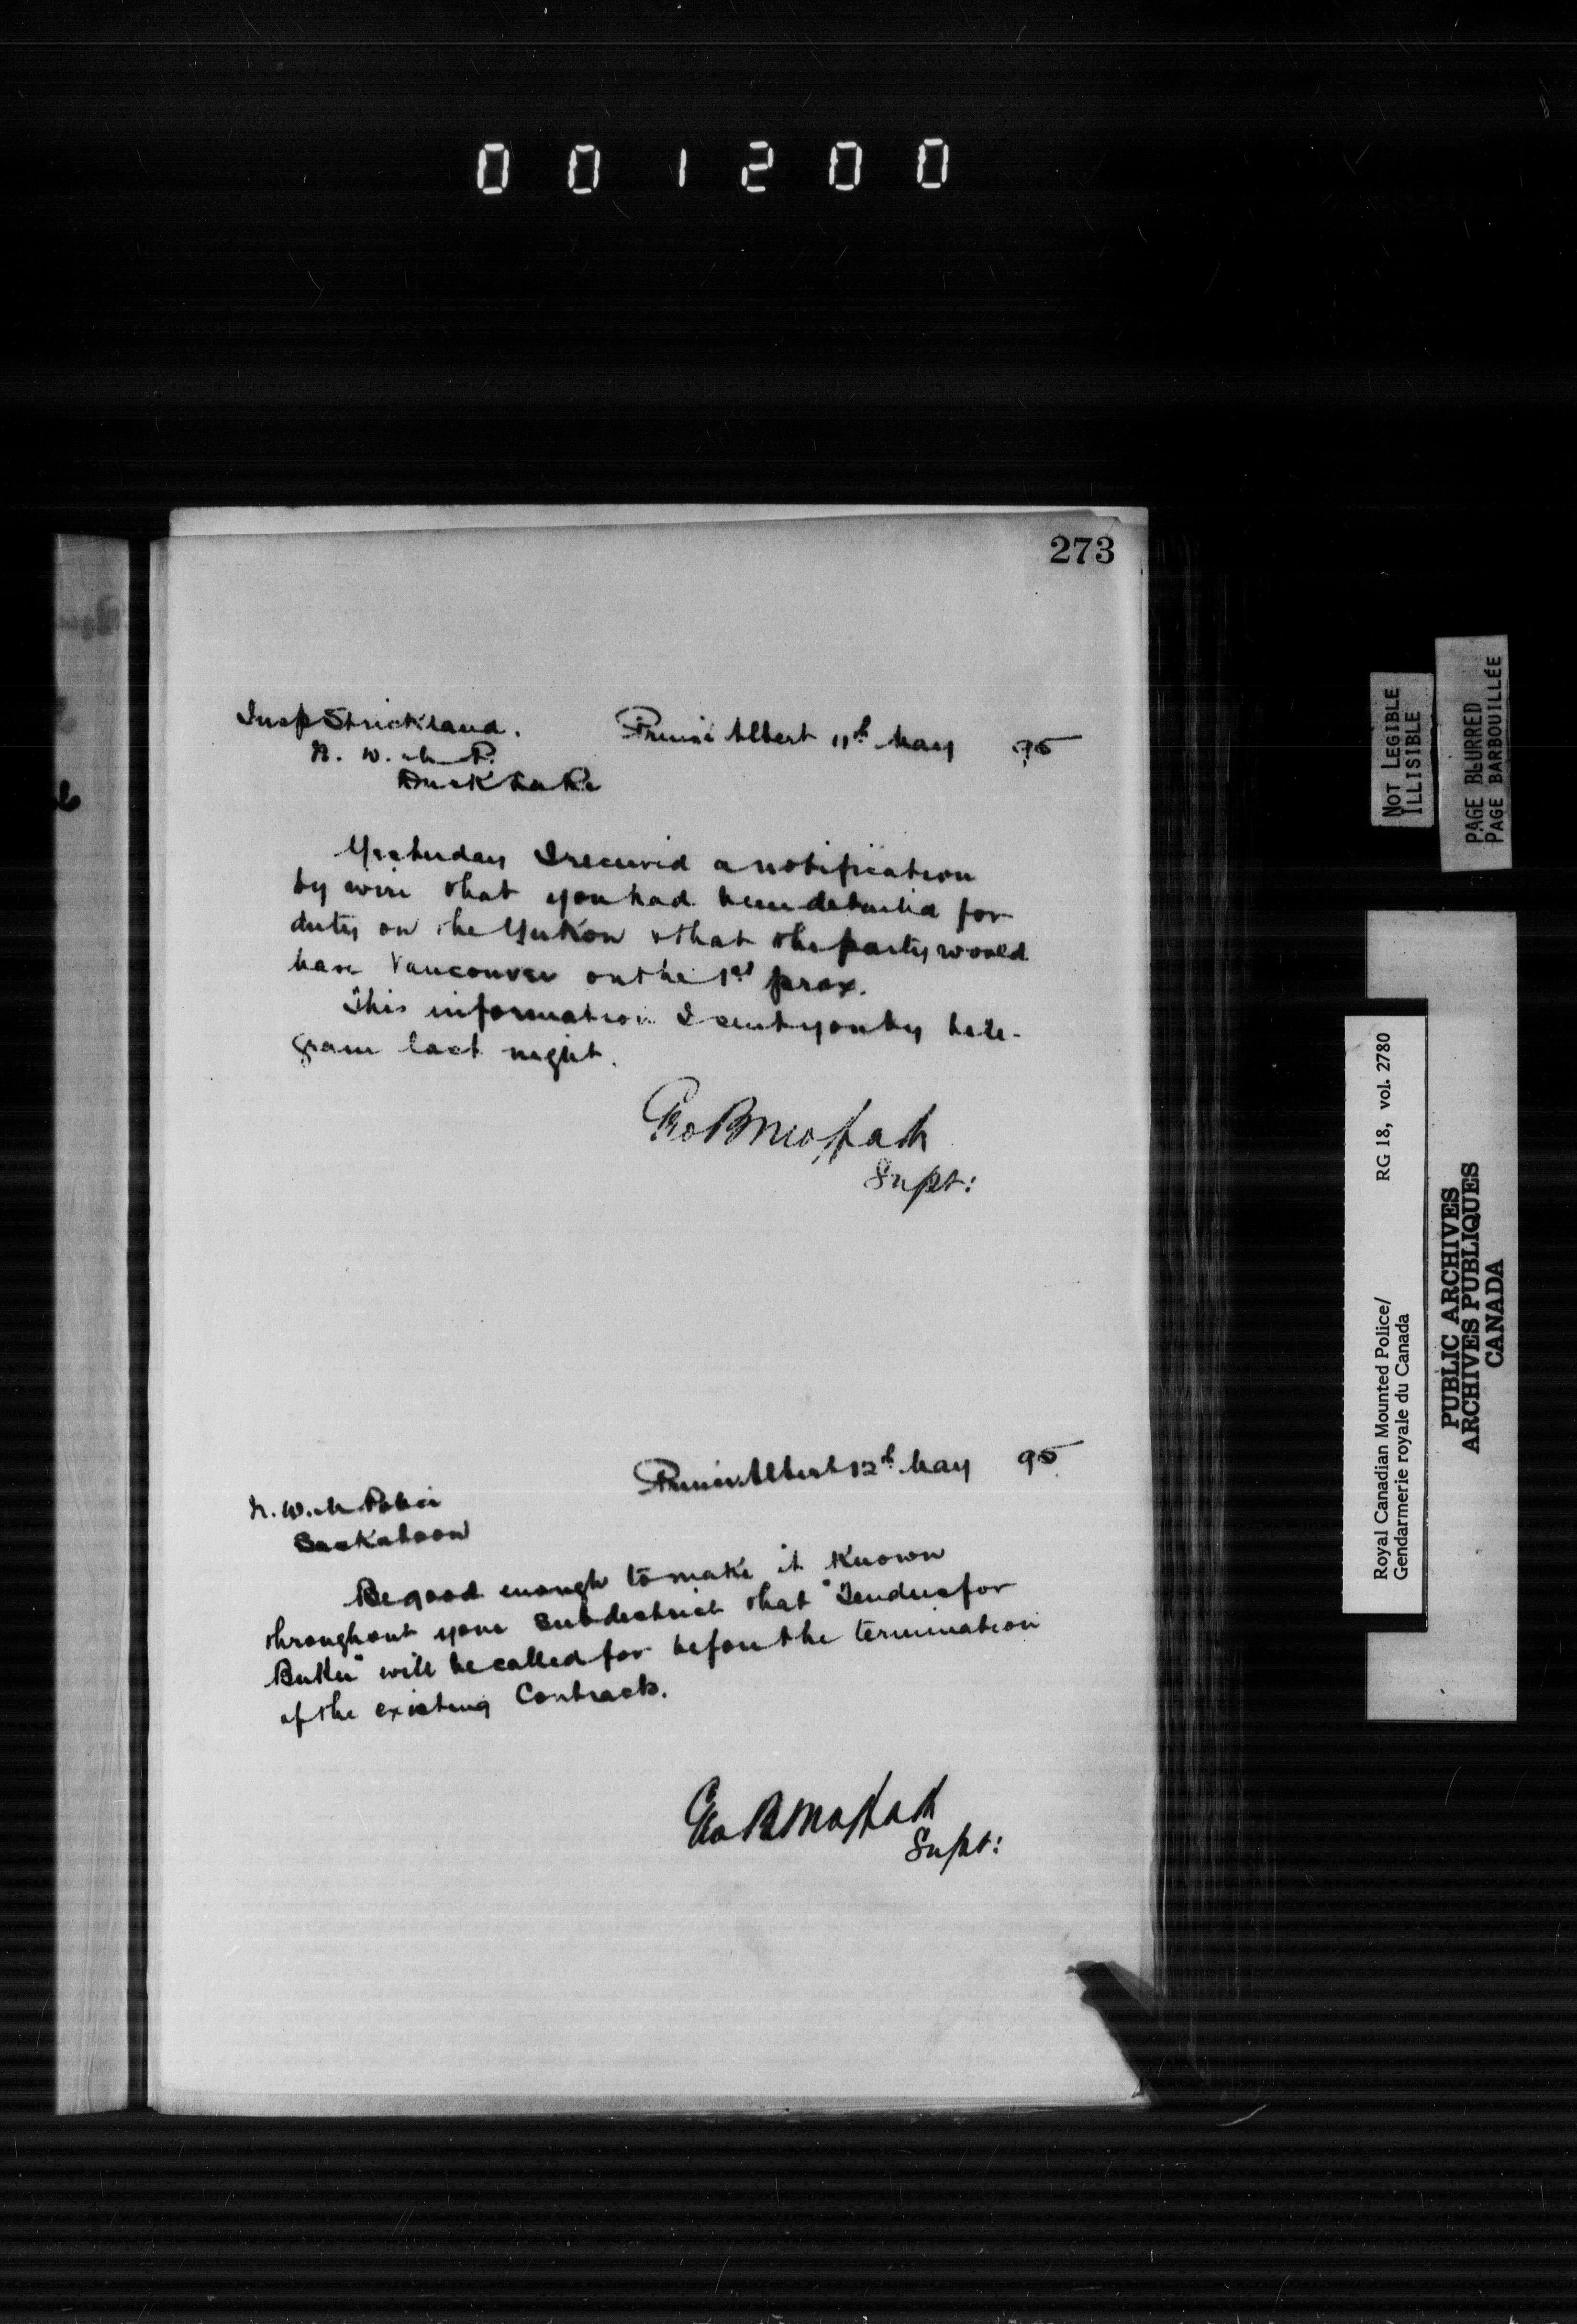 001200
273
Insp Strickland.
Prince Albert 11th May 95
N. W. M. P.
Duck Lake
Yesterday I received a notification
by wire that you had been detailed for
duty on the Yukon & that the party would
leave Vancouver on the 1st prox.
This information I sent you by tele-
gram last night.
Geo B Moffatt
Supt:
Prince Albert 12th May 95
N. W. M Police
Saskatoon
Be good enough to make it known
throughout your Subdistrict that "Tenders for
Butter" will be called for before the termination
of the existing Contracts.
Geo B Moffatt
Supt:
NOT LEGIBLE
ILLISIBLE
PAGE BLURRED
PAGE BARBOUILLÉE
Royal Canadian Mounted Police/ RG 18, vol. 2780
Gendarmerie royale du Canada
PUBLIC ARCHIVES
ARCHIVES PUBLIQUES
CANADA